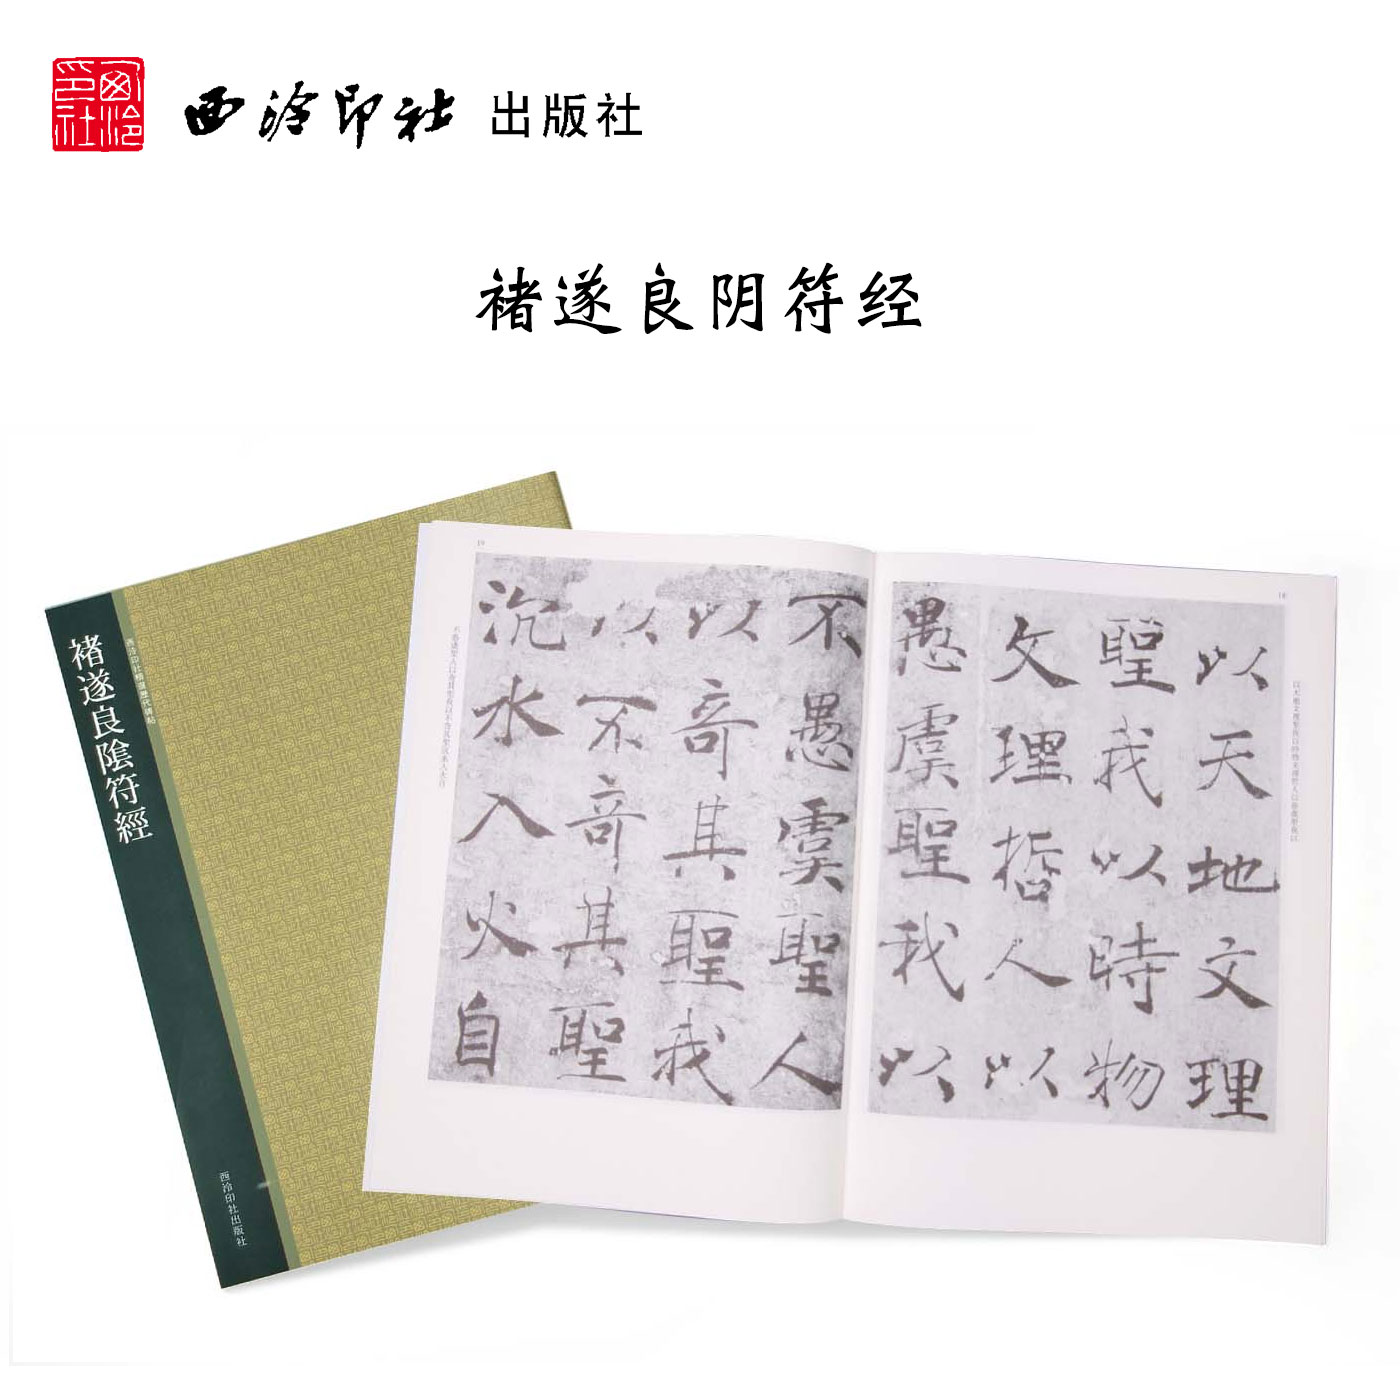 西泠印社
西泠印社 出版社
褚遂良阴符经
西泠印社精選歷代碑帖
褚遂良陰符經
西泠印社出版社
18
以天地文理
聖我以時物
文理哲人以
愚虞聖我以
19
不愚虞聖人
以奇其聖我
以不奇其聖
沉水入火自